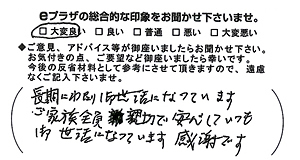 eプラザの総合的な印象をお聞かせ下さいませ。
□大変良い □良い □普通 □悪い □大変悪い
◆ご意見、アドバイス等が御座いましたらお聞かせ下さい。
お気付きの点、ご要望など御座いましたら幸いです。
今後の反省材料として参考にさせて頂きますので、遠慮
なくご記入下さいませ。
長期にわたりお世話になっています
ご家族全員 親切で安心していつも
お世話になっています 感謝です